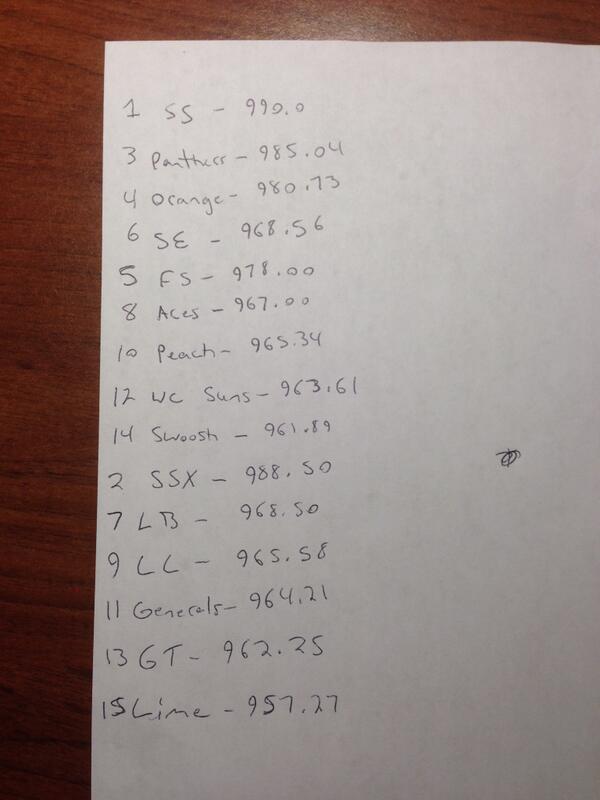 1 SS - 990.0
3 Panthers - 985.04
4 Orange - 980.73
6 SE - 968.56
5 FS - 978.00
8 Aces - 967.00
10 Peach - 965.34
12 WC Suns - 963.61
14 Swoosh - 961.89
2 SSX - 988.50
7 LB - 968.50
9 LL - 965.58
11 Generals - 964.21
13 GT - 962.25
15 Lime - 957.27